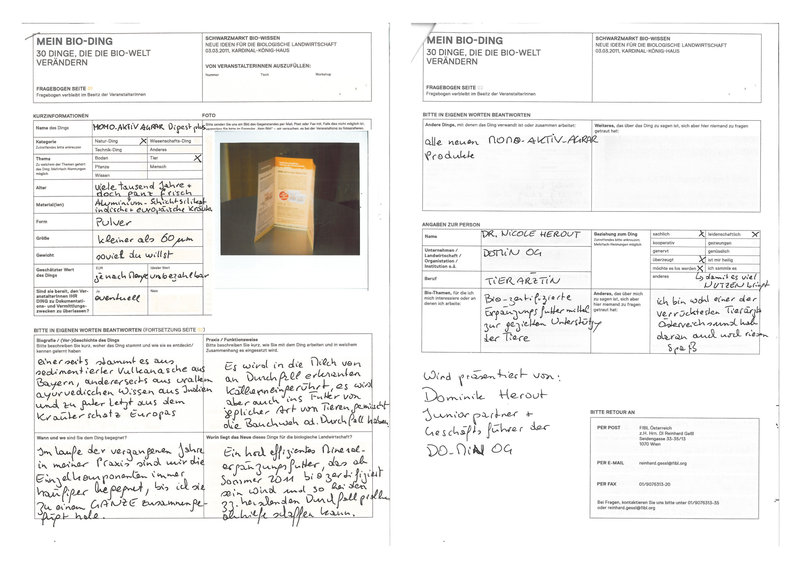 MEIN BIO-DING
30 DINGE, DIE DIE BIO-WELT
VERÄNDERN
FRAGEBOGEN SEITE
Fragebogen verbleibt im Besitz der VeranstalterInnen
SCHWARZMARKT BIO-WISSEN
NEUE IDEEN FÜR DIE BIOLOGISCHE LANDWIRTSCHAFT
03.03.2011, KARDINAL-KÖNIG-HAUS
VON VERANSTALTERINNEN AUSZUFÜLLEN:
Nummer Tisch Workshop
KURZINFORMATIONEN
Name des Dings HOMO-AKTIV AGRAR Digest plus
Kategorie
Zutreffendes bitte ankreuzen
Natur-Ding X Wissenschafts-Ding
Technik-Ding Anderes
Thema
Boden Tier X
Pflanze Mensch
Wissen
Alter viele tausend Jahre +
doch ganz frisch
Material(ien) Aluminium-Schichtsilikat
indische + europäische Kräuter
Form Pulver
Größe kleiner als 60 µm
Gewicht soviel du willst
Geschätzter Wert
des Dings
EUR ideeller Wert
je nach Menge unbezahlbar
Sind sie bereit, den Ver-
anstalterInnen IHR
DING zu Dokumentati-
ons- und Vermittlungs-
zwecken zu überlassen?
Ja Nein
eventuell
FOTO
BITTE IN EIGENEN WORTEN BEANTWORTEN (FORTSETZUNG SEITE
Biografie / (Vor-)Geschichte des Dings
Bitte beschreiben Sie kurz, woher das Ding stammt und wie sie es entdeckt/
kennen gelernt haben
einerseits stammt es aus
sedimentierter Vulkanasche aus
Bayern, andererseits aus uraltem
ayurvedischen Wissen aus Indien
und zu guter Letzt aus dem
Kräuterschatz Europas
Praxis / Funktionsweise
Bitte beschreiben Sie kurz, wie Sie mit dem Ding arbeiten und in welchem
Zusammenhang es eingesetzt wird.
Es wird in die Milch von
an Durchfall erkrankten
Kälbern eingerührt, es wird
aber auch ins Futter von
jeglicher Art von Tieren gemischt
die Bauchweh od. Durchfall haben
Wann und wo sind Sie dem Ding begegnet?
Im Laufe der vergangenen Jahre
in meiner Praxis sind mir die
Einzelkomponenten immer
häufiger begegnet, bis ich sie
zu einem GANZE zusammenge-
fügt habe.
Worin liegt das Neue dieses Dings für die biologische Landwirtschaft?
Ein hoch effizientes Mineral-
ergänzungsfutter, das ab
Sommer 2011 biozertifiziert
sein wird und so bei den
zz. herrschenden Durchfallproblemen
abhilfe schaffen kann.
MEIN BIO-DING
30 DINGE, DIE DIE BIO-WELT
VERÄNDERN
FRAGEBOGEN SEITE
Fragebogen verbleibt im Besitz der VeranstalterInnen
SCHWARZMARKT BIO-WISSEN
NEUE IDEEN FÜR DIE BIOLOGISCHE LANDWIRTSCHAFT
03.03.2011, KARDINAL-KÖNIG-HAUS
BITTE IN EIGENEN WORTEN BEANTWORTEN
Andere Dinge, mit denen das Ding verwandt ist oder zusammen arbeitet:
alle neuen HOMO-AKTIV-AGRAR
Produkte
Weiteres, das über das Ding zu sagen ist, sich aber hier niemand zu fragen
getraut hat:
ANGABEN ZUR PERSON
Name DR. NICOLE HEROUT
Unternehmen /
Landwirtschaft /
Organisation /
Institution o.ä.
DOMIN OG
Beruf TIERÄRZTIN
Bio-Themen, für die ich
mich interessiere oder an
denen ich arbeite:
Bio-zertifizierte
Ergänzungsfuttermittel
zur gezielten Unterstützung
der Tiere
Beziehung zum Ding
Zutreffendes bitte ankreuzen,
Mehrfach-Nennungen möglich
sachlich X leidenschaftlich X
kooperativ gezwungen
genervt genüsslich
überzeugt X ist mir heilig
möchte es los werden X ich sammle es
anderes damit es viel
NUTZEN bringt
Anderes, das über mich
zu sagen ist, sich aber
hier niemand zu fragen
getraut hat:
ich bin wohl einer der
verrücktesten Tierärzte
Österreichs und hab
daran auch noch riesen
Spaß
Wird präsentiert von:
Dominik Herout
Juniorpartner +
Geschäftsführer der
DO-MIN OG
BITTE RETOUR AN
PER POST FIBL Österreich
z.H. Hrn. DI Reinhard Geßl
Seidengasse 33-35/13
1070 Wien
PER E-MAIL reinhard.gessl@fibl.org
PER FAX 01/9076313-20
Bei Fragen, kontaktieren Sie uns bitte unter 01/9076313-35
oder reinhard.gessl@fibl.org